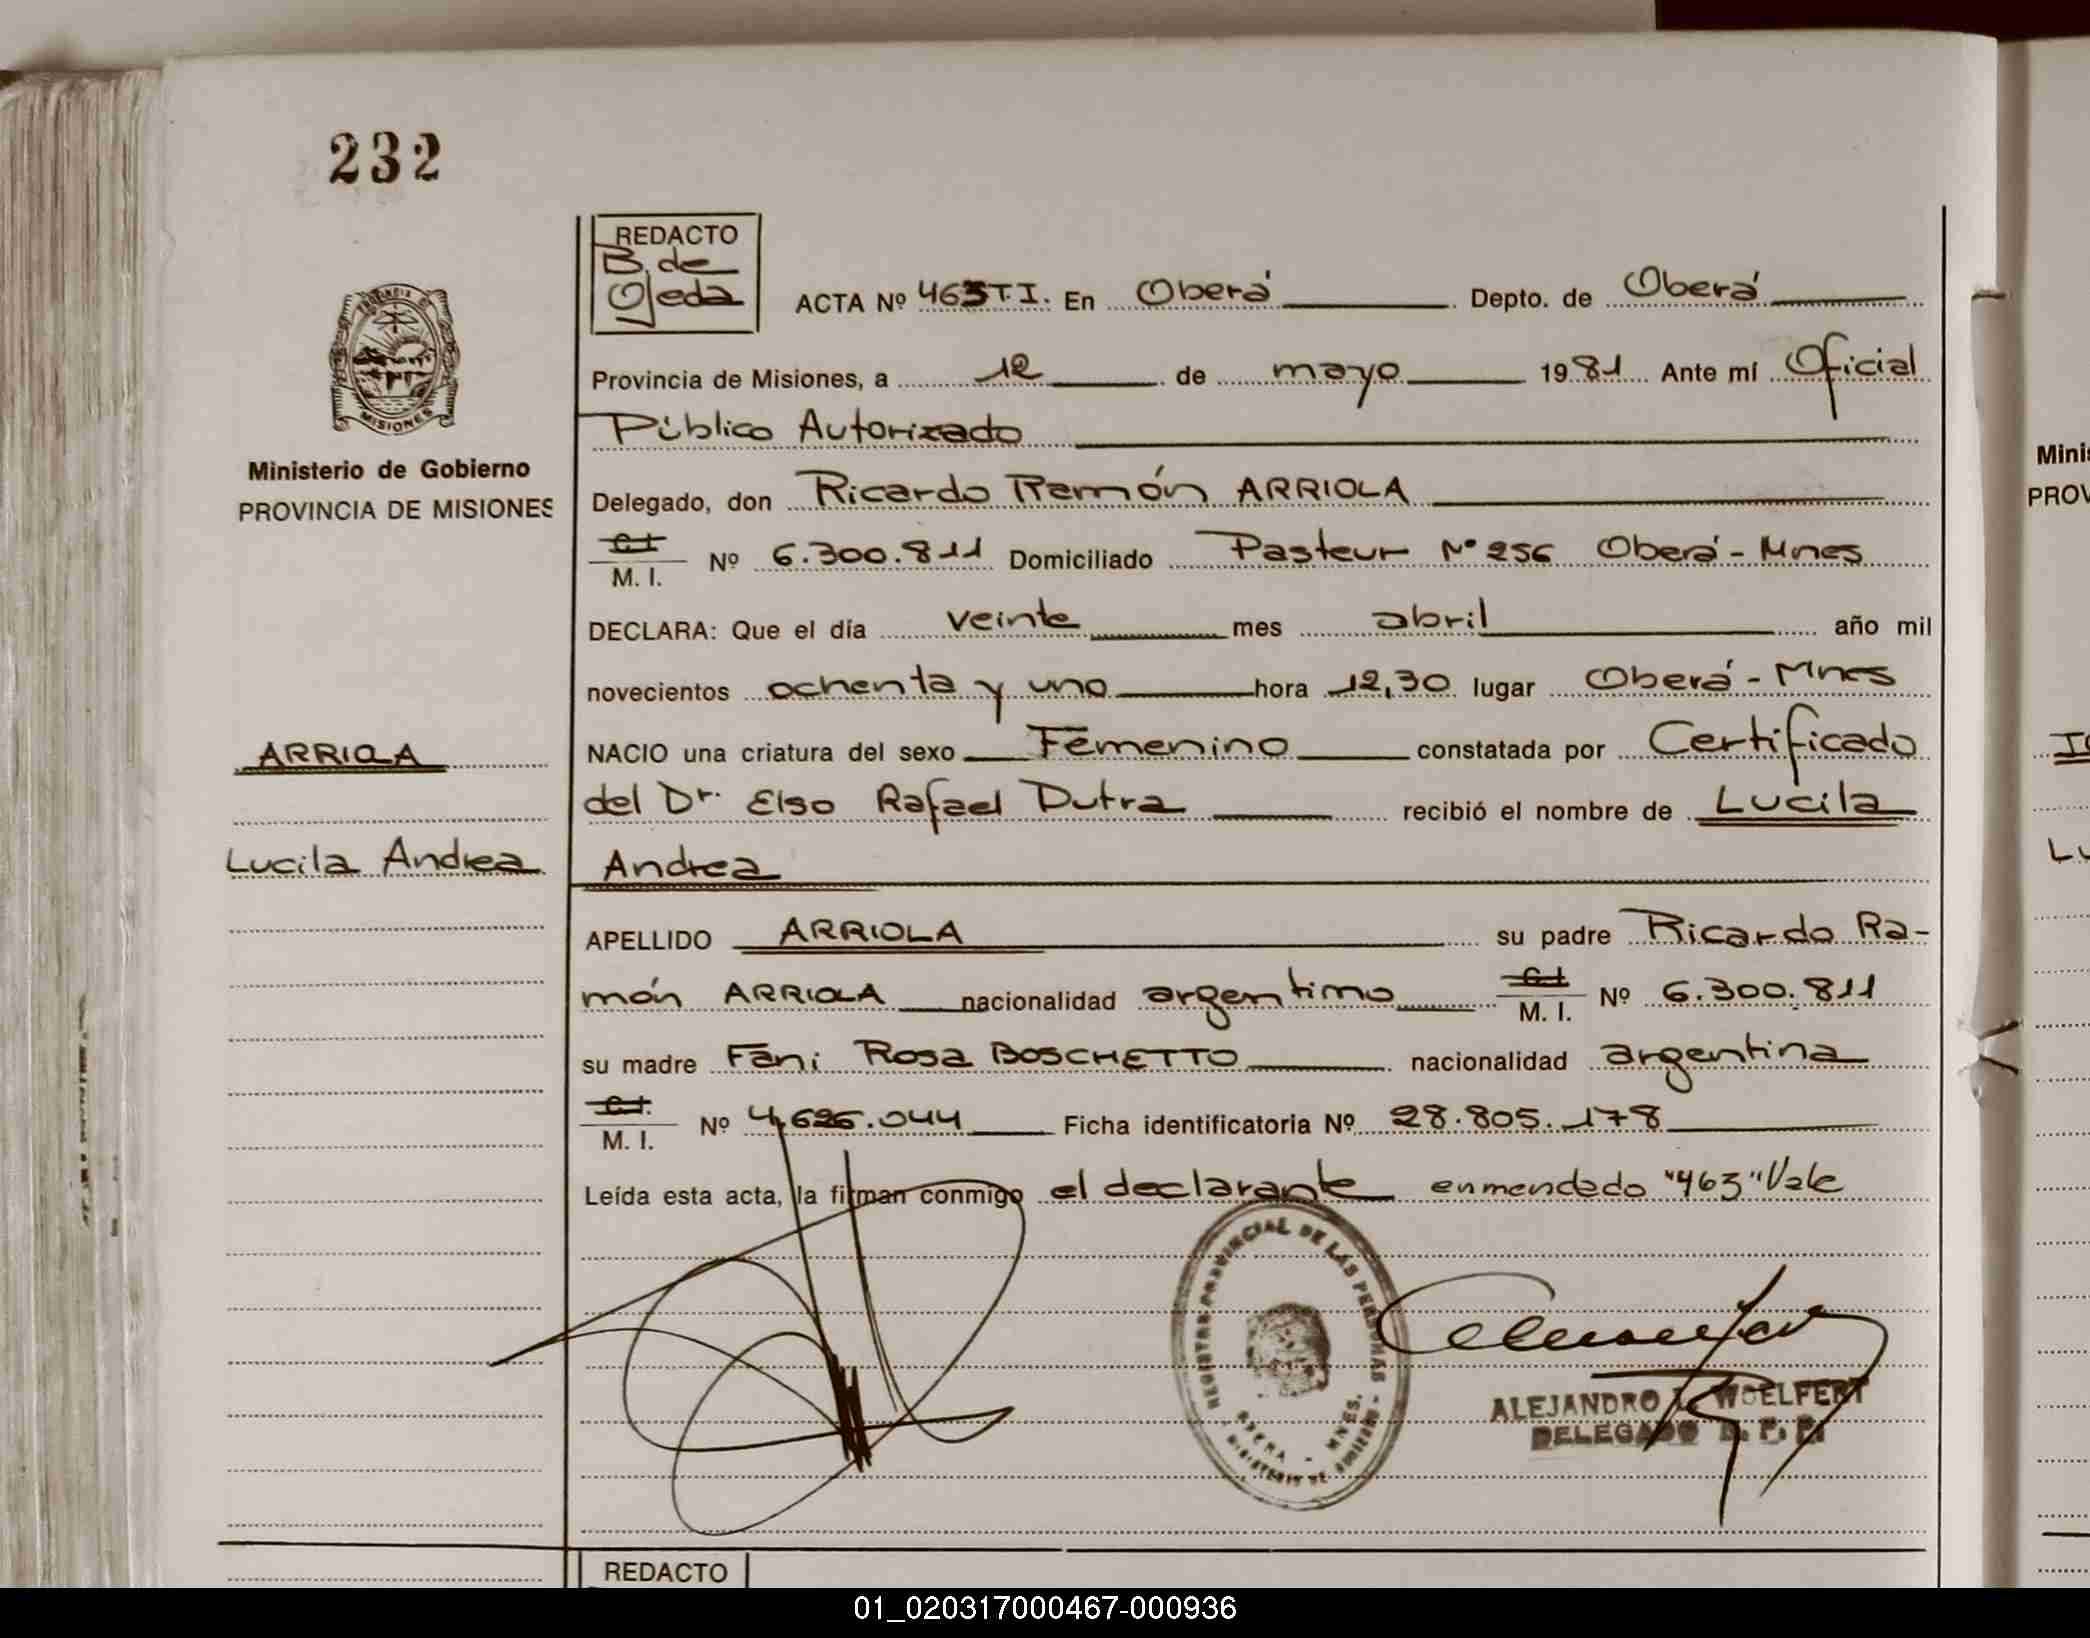 232
REDACTO
B. de
Ojeda
ACTA Nº 463 T.I. En Oberá Depto. de Oberá
PROVINCIA DE
MISIONES
Provincia de Misiones, a 12 de mayo 1981 Ante mí Oficial
Público Autorizado
Ministerio de Gobierno
PROVINCIA DE MISIONES
Delegado, don Ricardo Ramón ARRIOLA
C.I.
M. I. Nº 6.300.811 Domiciliado Pasteur Nº 256 Oberá - Mnes
DECLARA: Que el día veinte mes abril año mil
novecientos ochenta y uno hora 12,30 lugar Oberá - Mnes
ARRIOLA
NACIO una criatura del sexo Femenino constatada por Certificado
del Dr. Elso Rafael Dutra recibió el nombre de Lucila
Lucila Andrea
Andrea
APELLIDO ARRIOLA su padre Ricardo Ra-
món ARRIOLA nacionalidad argentino C.I.
M. I. Nº 6.300.811
su madre Fani Rosa BOSCHETTO nacionalidad argentina
C.I.
M. I. Nº 4,626.044 Ficha identificatoria Nº 28.805.178
Leída esta acta, la firman conmigo el declarante enmendado "463" Vale
REGISTRO PROVINCIAL DE LAS PERSONAS
OBERA - MNES.
MINISTERIO DE GOBIERNO
ALEJANDRO WOELFERT
DELEGADO R. P. P.
REDACTO
Minis
PROV
Lu
01_020317000467-000936